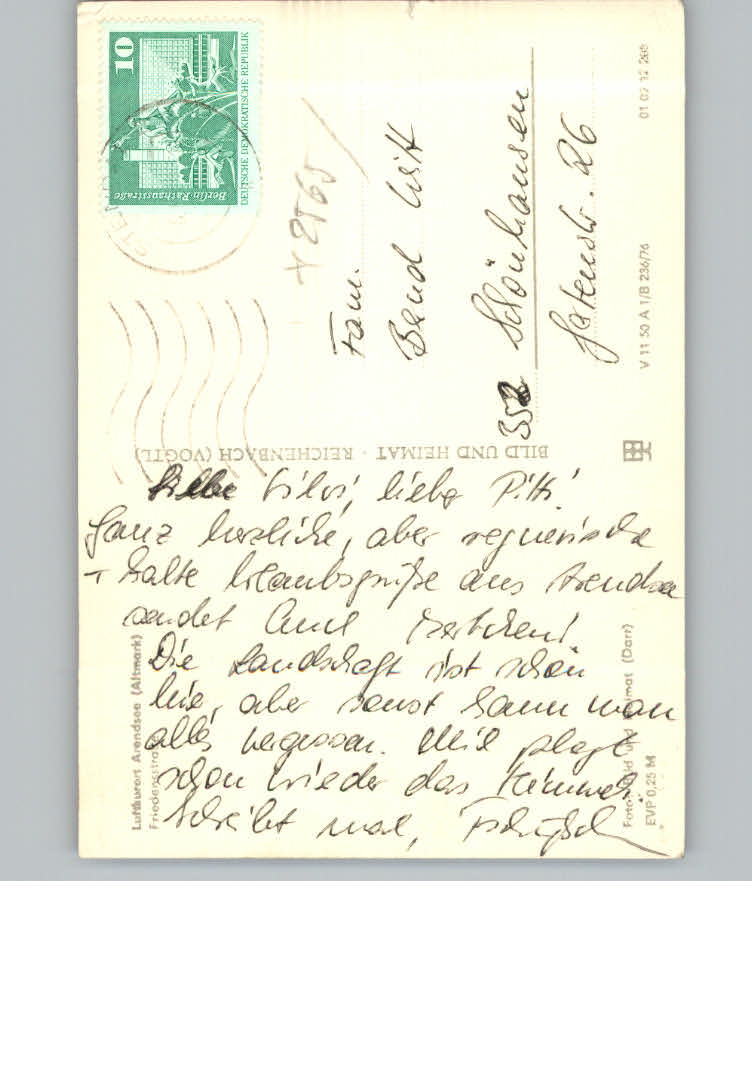 10
Berlin-Rathausstraße
DEUTSCHE DEMOKRATISCHE REPUBLIK
+ 2565
Fam.
Schönhausen
26
01 09 12 268
V 11 50 A 1/B 236/76
BILD UND HEIMAT · REICHENBACH (VOGTL)
Liebe Silvi, liebe Pitti!
Ganz herzliche, aber regnerische
+ kalte Urlaubsgrüße aus Arendsee
sendet Euch
Die Landschaft ist schön
hier, aber sonst kann man
alles vergessen. Mich plagt
schon wieder das Heimweh.
Schreibt mal,
Luftkurort Arendsee (Altmark)
Friedensstraße
Foto: Bild und Heimat (Darr)
EVP 0,25 M